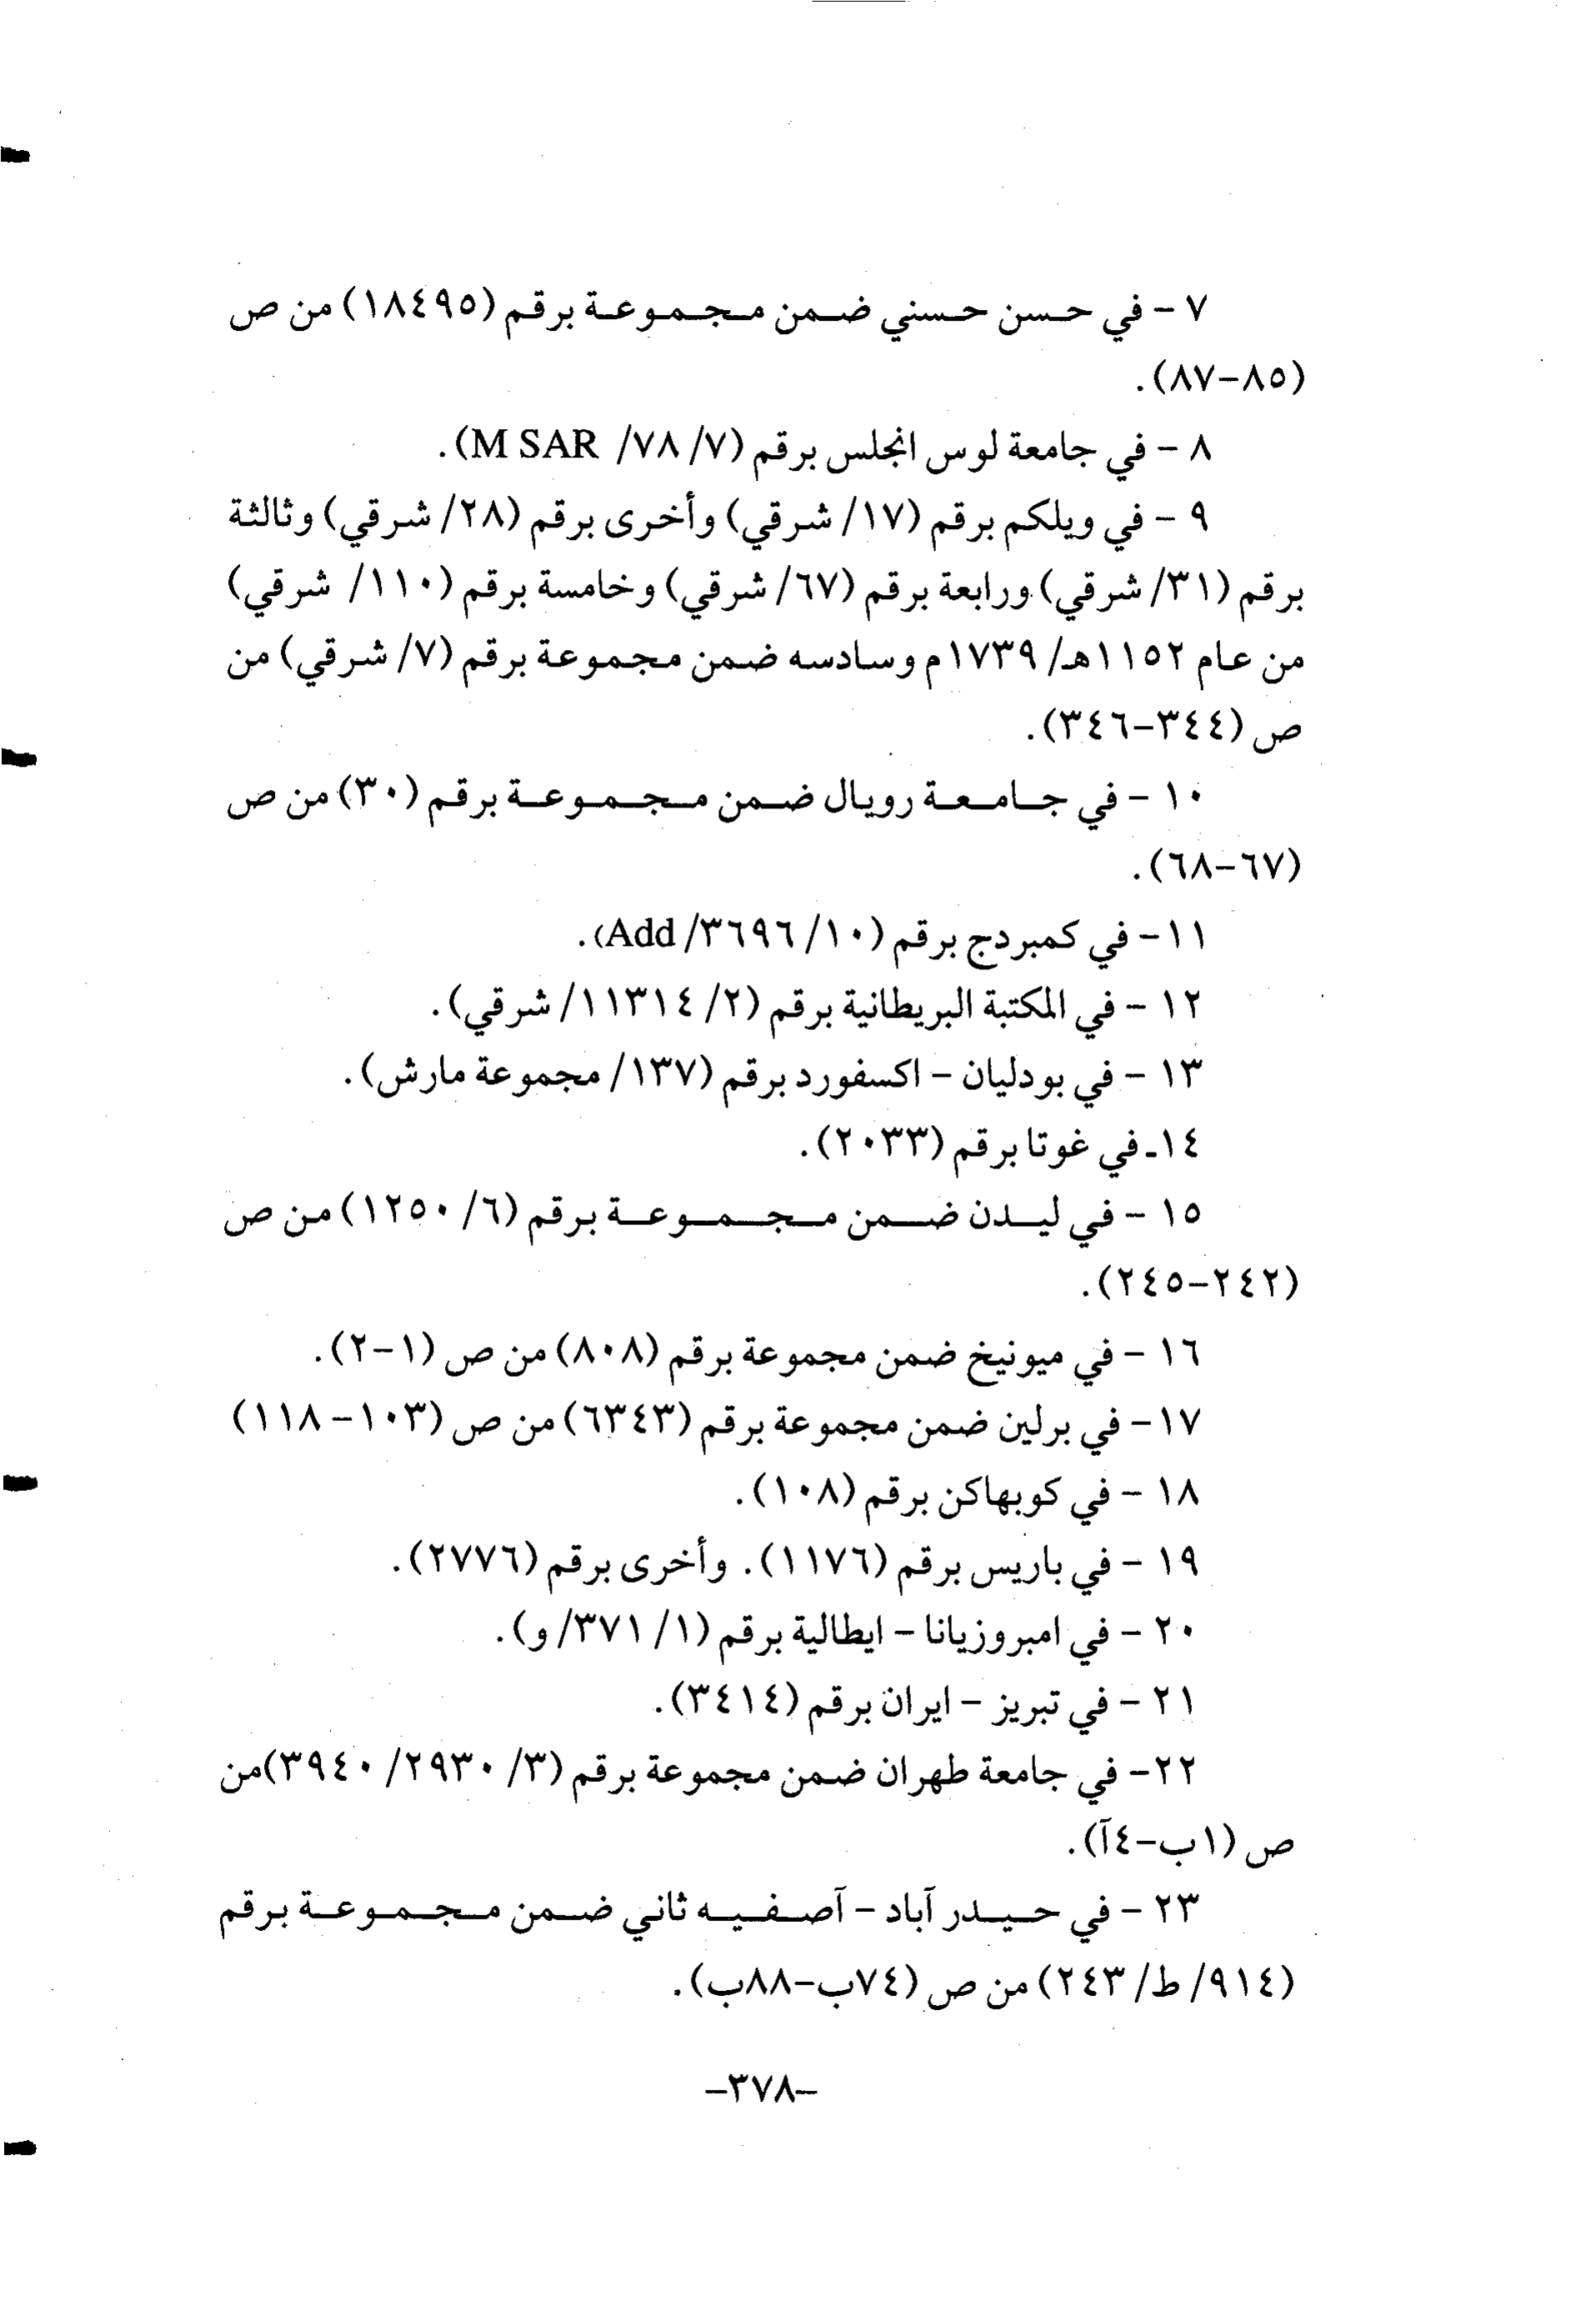 ٧ - في حسن حسني ضمن مجموعة برقم (١٨٤٩٥) من ص
(٨٥-٨٧).
٨ - في جامعة لوس انجلس برقم (٧/ ٧٨/ M SAR).
٩ - في ويلكم برقم (١٧/ شرقي) وأخرى برقم (٢٨/ شرقي) وثالثة
برقم (٣١/ شرقي) ورابعة برقم (٦٧/ شرقي) وخامسة برقم (١١٠/ شرقي)
من عام ١١٥٢هـ/ ١٧٣٩م وسادسه ضمن مجموعة برقم (٧/ شرقي) من
ص (٣٤٤-٣٤٦).
١٠ - في جامعة رويال ضمن مجموعة برقم (٣٠) من ص
(٦٧-٦٨).
١١- في كمبردج برقم (١٠/ ٣٦٩٦/ Add).
١٢ - في المكتبة البريطانية برقم (٢/ ١١٣١٤/ شرقي).
١٣ - في بودليان - اكسفورد برقم (١٣٧/ مجموعة مارش).
١٤ـ في غوتا برقم (٢٠٣٣).
١٥ - في ليدن ضمن مجموعة برقم (٦/ ١٢٥٠) من ص
(٢٤٢-٢٤٥).
١٦ - في ميونيخ ضمن مجموعة برقم (٨٠٨) من ص (١-٢).
١٧- في برلين ضمن مجموعة برقم (٦٣٤٣) من ص (١٠٣- ١١٨)
١٨ - في كوبهاكن برقم (١٠٨).
١٩ - في باريس برقم (١١٧٦). وأخرى برقم (٢٧٧٦).
٢٠ - في امبروزيانا - ايطالية برقم (١/ ٣٧١/ و).
٢١ - في تبريز - ايران برقم (٣٤١٤).
٢٢- في جامعة طهران ضمن مجموعة برقم (٣/ ٢٩٣٠/ ٣٩٤٠)من
ص (١ب-٤آ).
٢٣ - في حيدر آباد - آصفيه ثاني ضمن مجموعة برقم
(٩١٤/ ط/ ٢٤٣) من ص (٧٤ب-٨٨ب).
-٣٧٨-